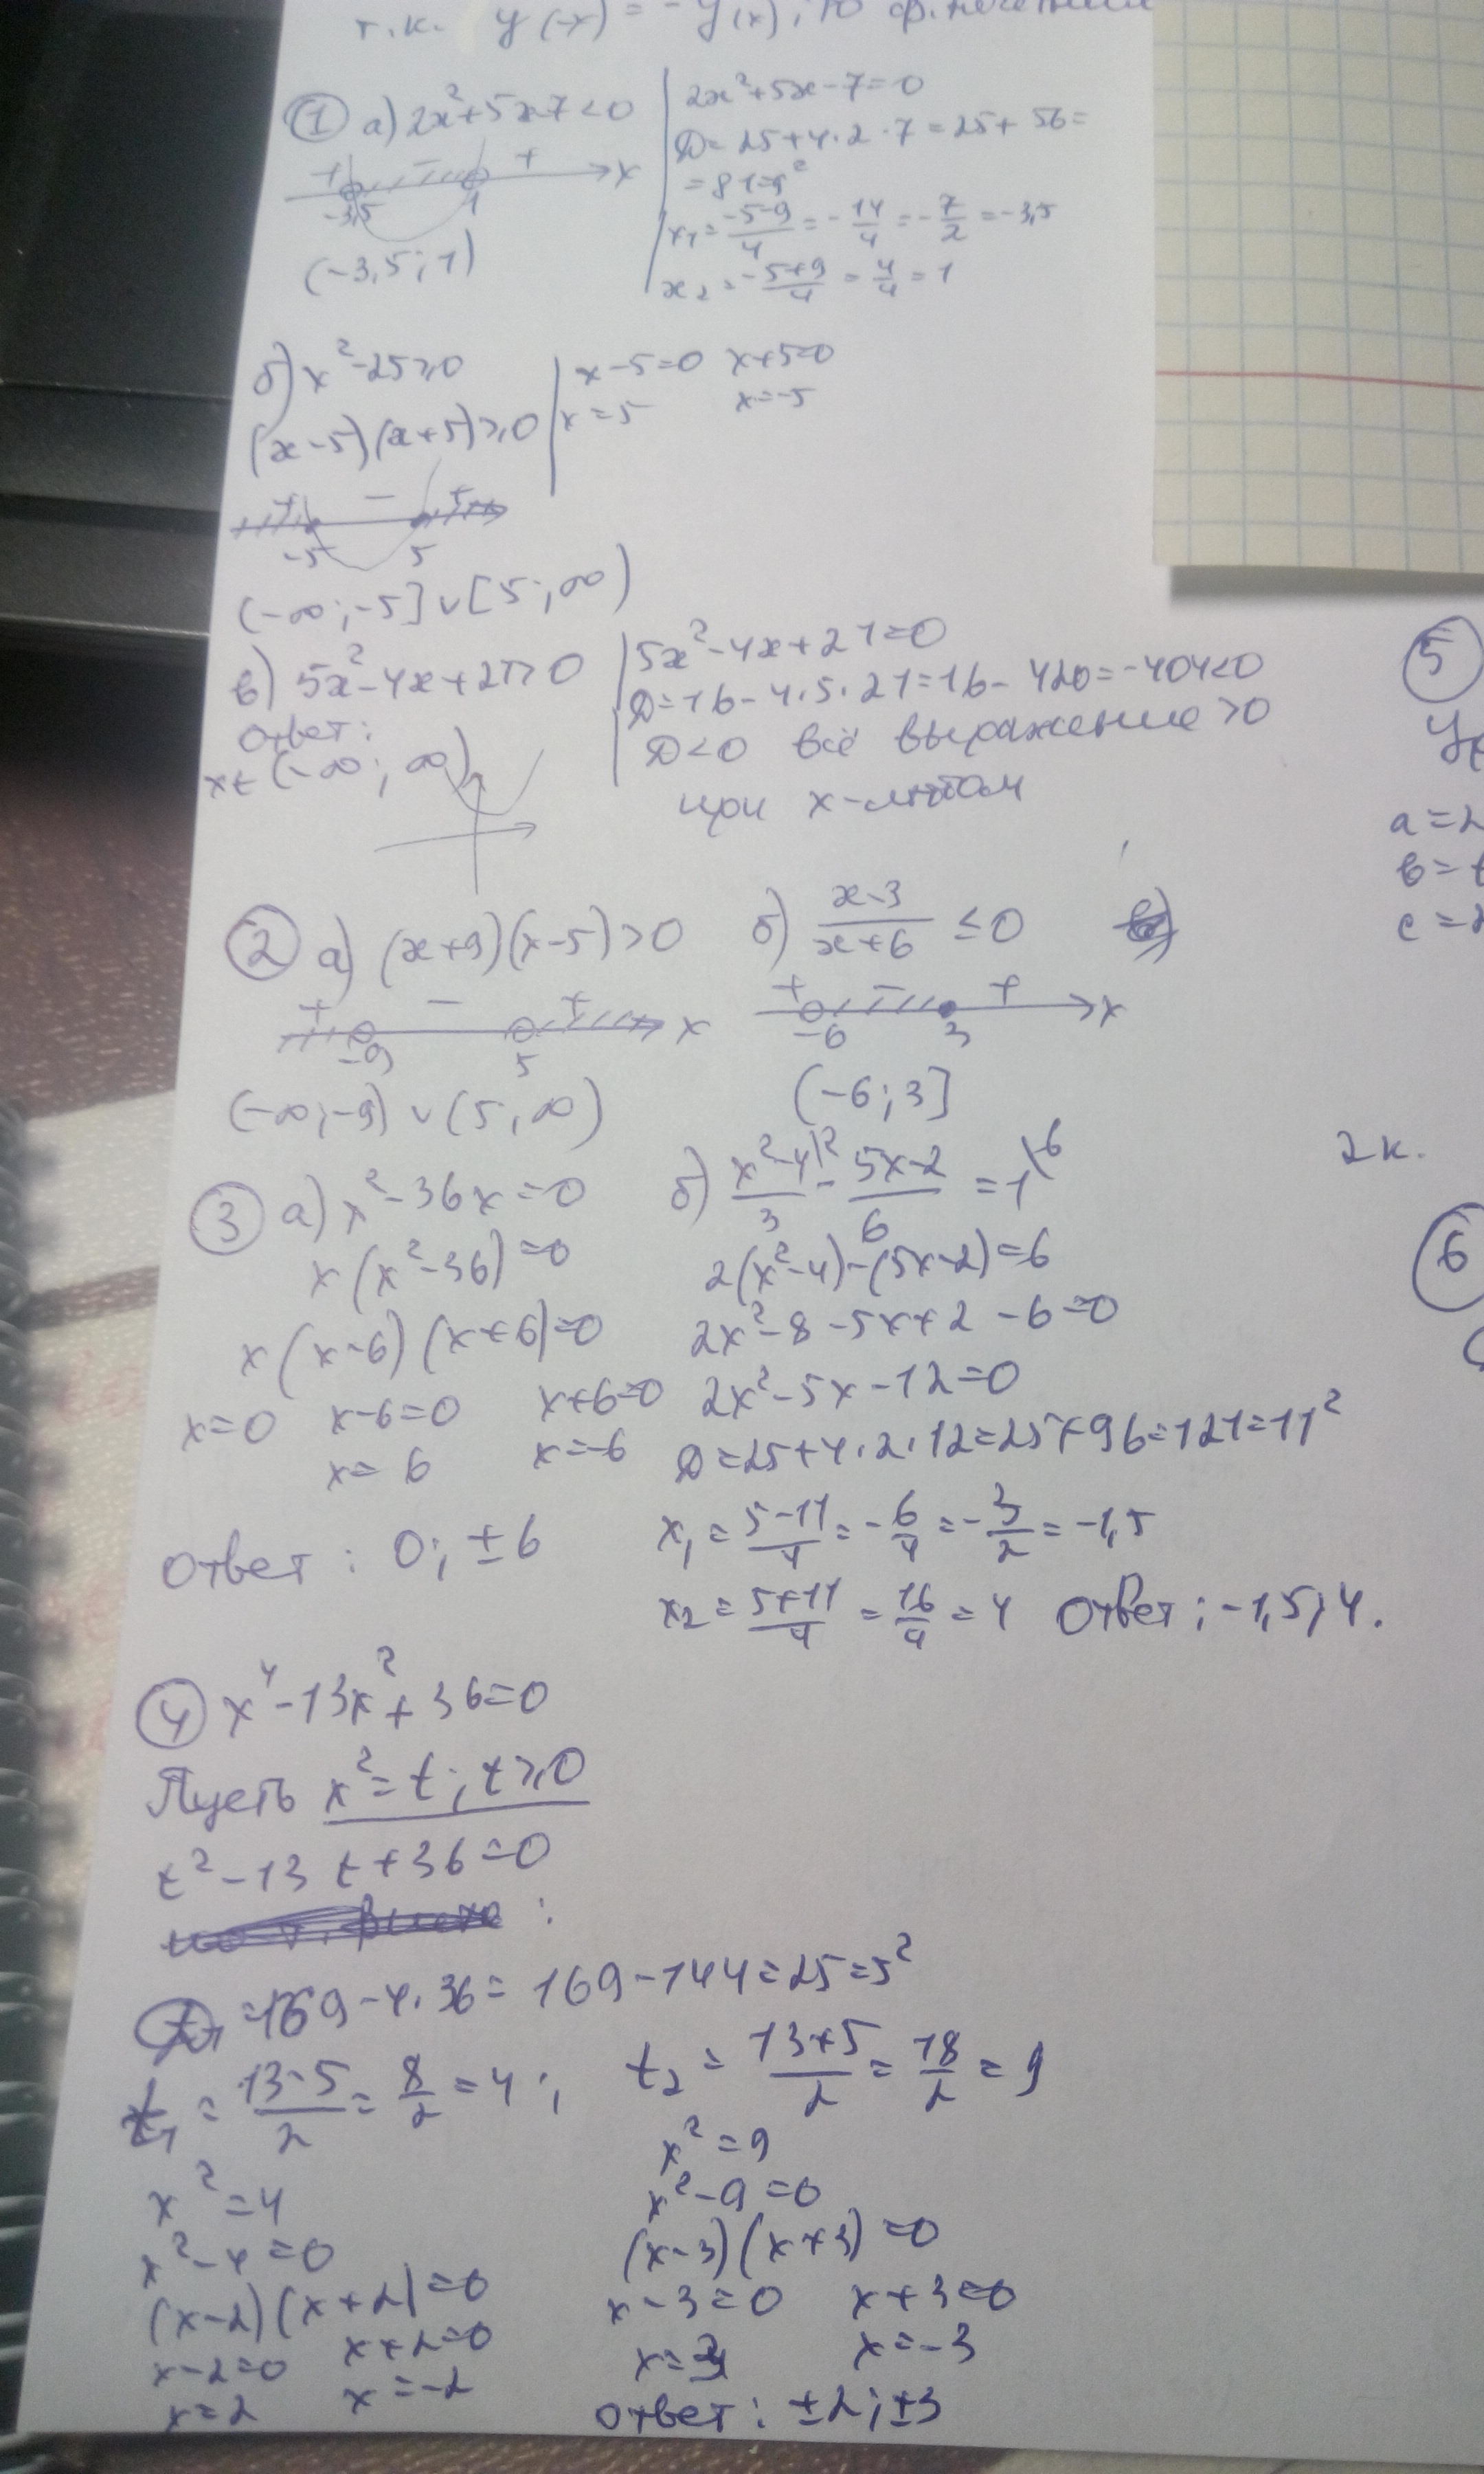 т.к. y(-x) = -y(x), то
① а) 2x²+5x-7<0
2x²+5x-7=0
D=25+4·2·7=25+56=
=81=9²
x₁=(-5-9)/4=-14/4=-7/2=-3,5
x₂=(-5+9)/4=4/4=1
+ - + x
-3,5 1
(-3,5;1)
б) x²-25≥0
x-5=0 x+5=0
x=5 x=-5
(x-5)(x+5)≥0
+ - +
-5 5
(-∞;-5]∪[5;∞)
в) 5x²-4x+21>0
5x²-4x+21=0
D=16-4·5·21=16-420=-404<0
D<0 всё выражение >0
при x-любом
ответ:
x∈(-∞;∞)
② а) (x+9)(x-5)>0
+ - + x
-9 5
(-∞;-9)∪(5;∞)
б) (x-3)/(x+6) ≤0
+ - + x
-6 3
(-6;3]
③ а) x²-36x=0
x(x²-36)=0
x(x-6)(x+6)=0
x=0 x-6=0 x+6=0
x=6 x=-6
ответ: 0; ±6
б) (x²-4)/3 \2 - (5x-2)/6 =1 \6
2(x²-4)-(5x-2)=6
2x²-8-5x+2-6=0
2x²-5x-12=0
D=25+4·2·12=25+96=121=11²
x₁=(5-11)/4=-6/4=-3/2=-1,5
x₂=(5+11)/4=16/4=4 Ответ: -1,5; 4.
④ x⁴-13x²+36=0
Пусть x²=t; t≥0
t²-13t+36=0
D=169-4·36=169-144=25=5²
t₁=(13-5)/2=8/2=4; t₂=(13+5)/2=18/2=9
x²=4
x²-4=0
(x-2)(x+2)=0
x-2=0 x+2=0
x=2 x=-2
x²=9
x²-9=0
(x-3)(x+3)=0
x-3=0 x+3=0
x=3 x=-3
ответ: ±2; ±3
⑤
a=2
в=
c=
2к.
⑥